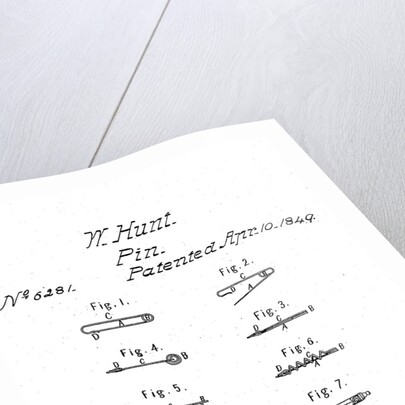 W. Hunt.
Pin.
Patented Apr. 10. 1849.
No. 6281.
Fig. 1.
C
D A B
Fig. 2.
C
D A B
Fig. 3.
C B
D A
Fig. 4.
D C B
Fig. 5.
Fig. 6.
C B
D A
Fig. 7.